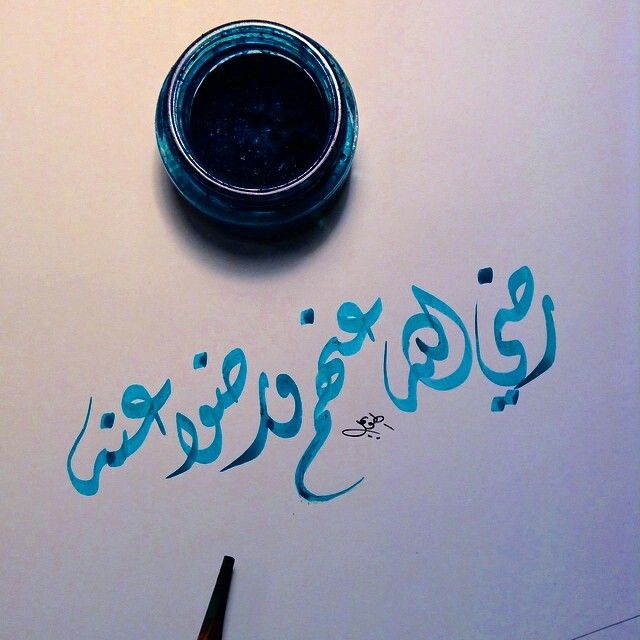 رضي الله عنهم ورضوا عنه